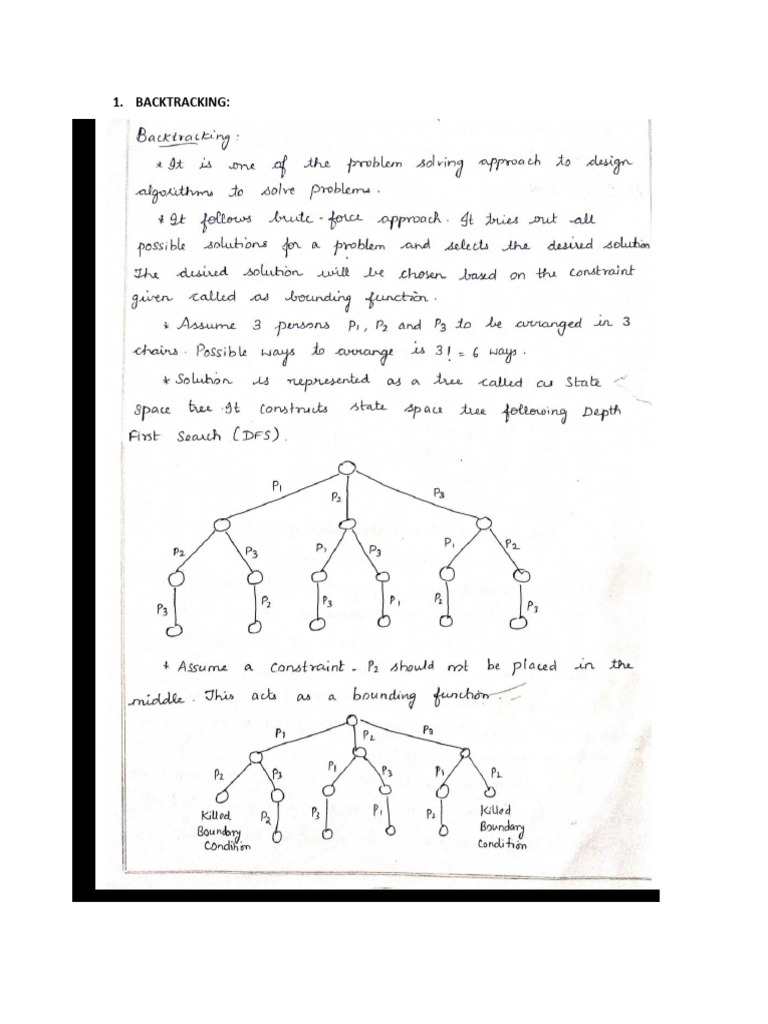 1. BACKTRACKING:
Backtracking:
* It is one of the problem solving approach to design
algorithms to solve problems.
* It follows brute-force approach. It tries out all
possible solutions for a problem and selects the desired solution
The desired solution will be chosen based on the constraint
given called as bounding function.
* Assume 3 persons P1, P2 and P3 to be arranged in 3
chairs. Possible ways to arrange is 3! = 6 ways.
* Solution is represented as a tree called as State
Space tree. It constructs state space tree following Depth
First Search (DFS).
P1 P2 P3
P2 P3 P1 P3 P1 P2
P3 P2 P3 P1 P2 P3
* Assume a constraint - P2 should not be placed in the
middle. This acts as a bounding function.
P1 P2 P3
P2 P3 P1 P3 P1 P2
Killed P2 P3 P1 P2 Killed
Boundary Boundary
Condition Condition